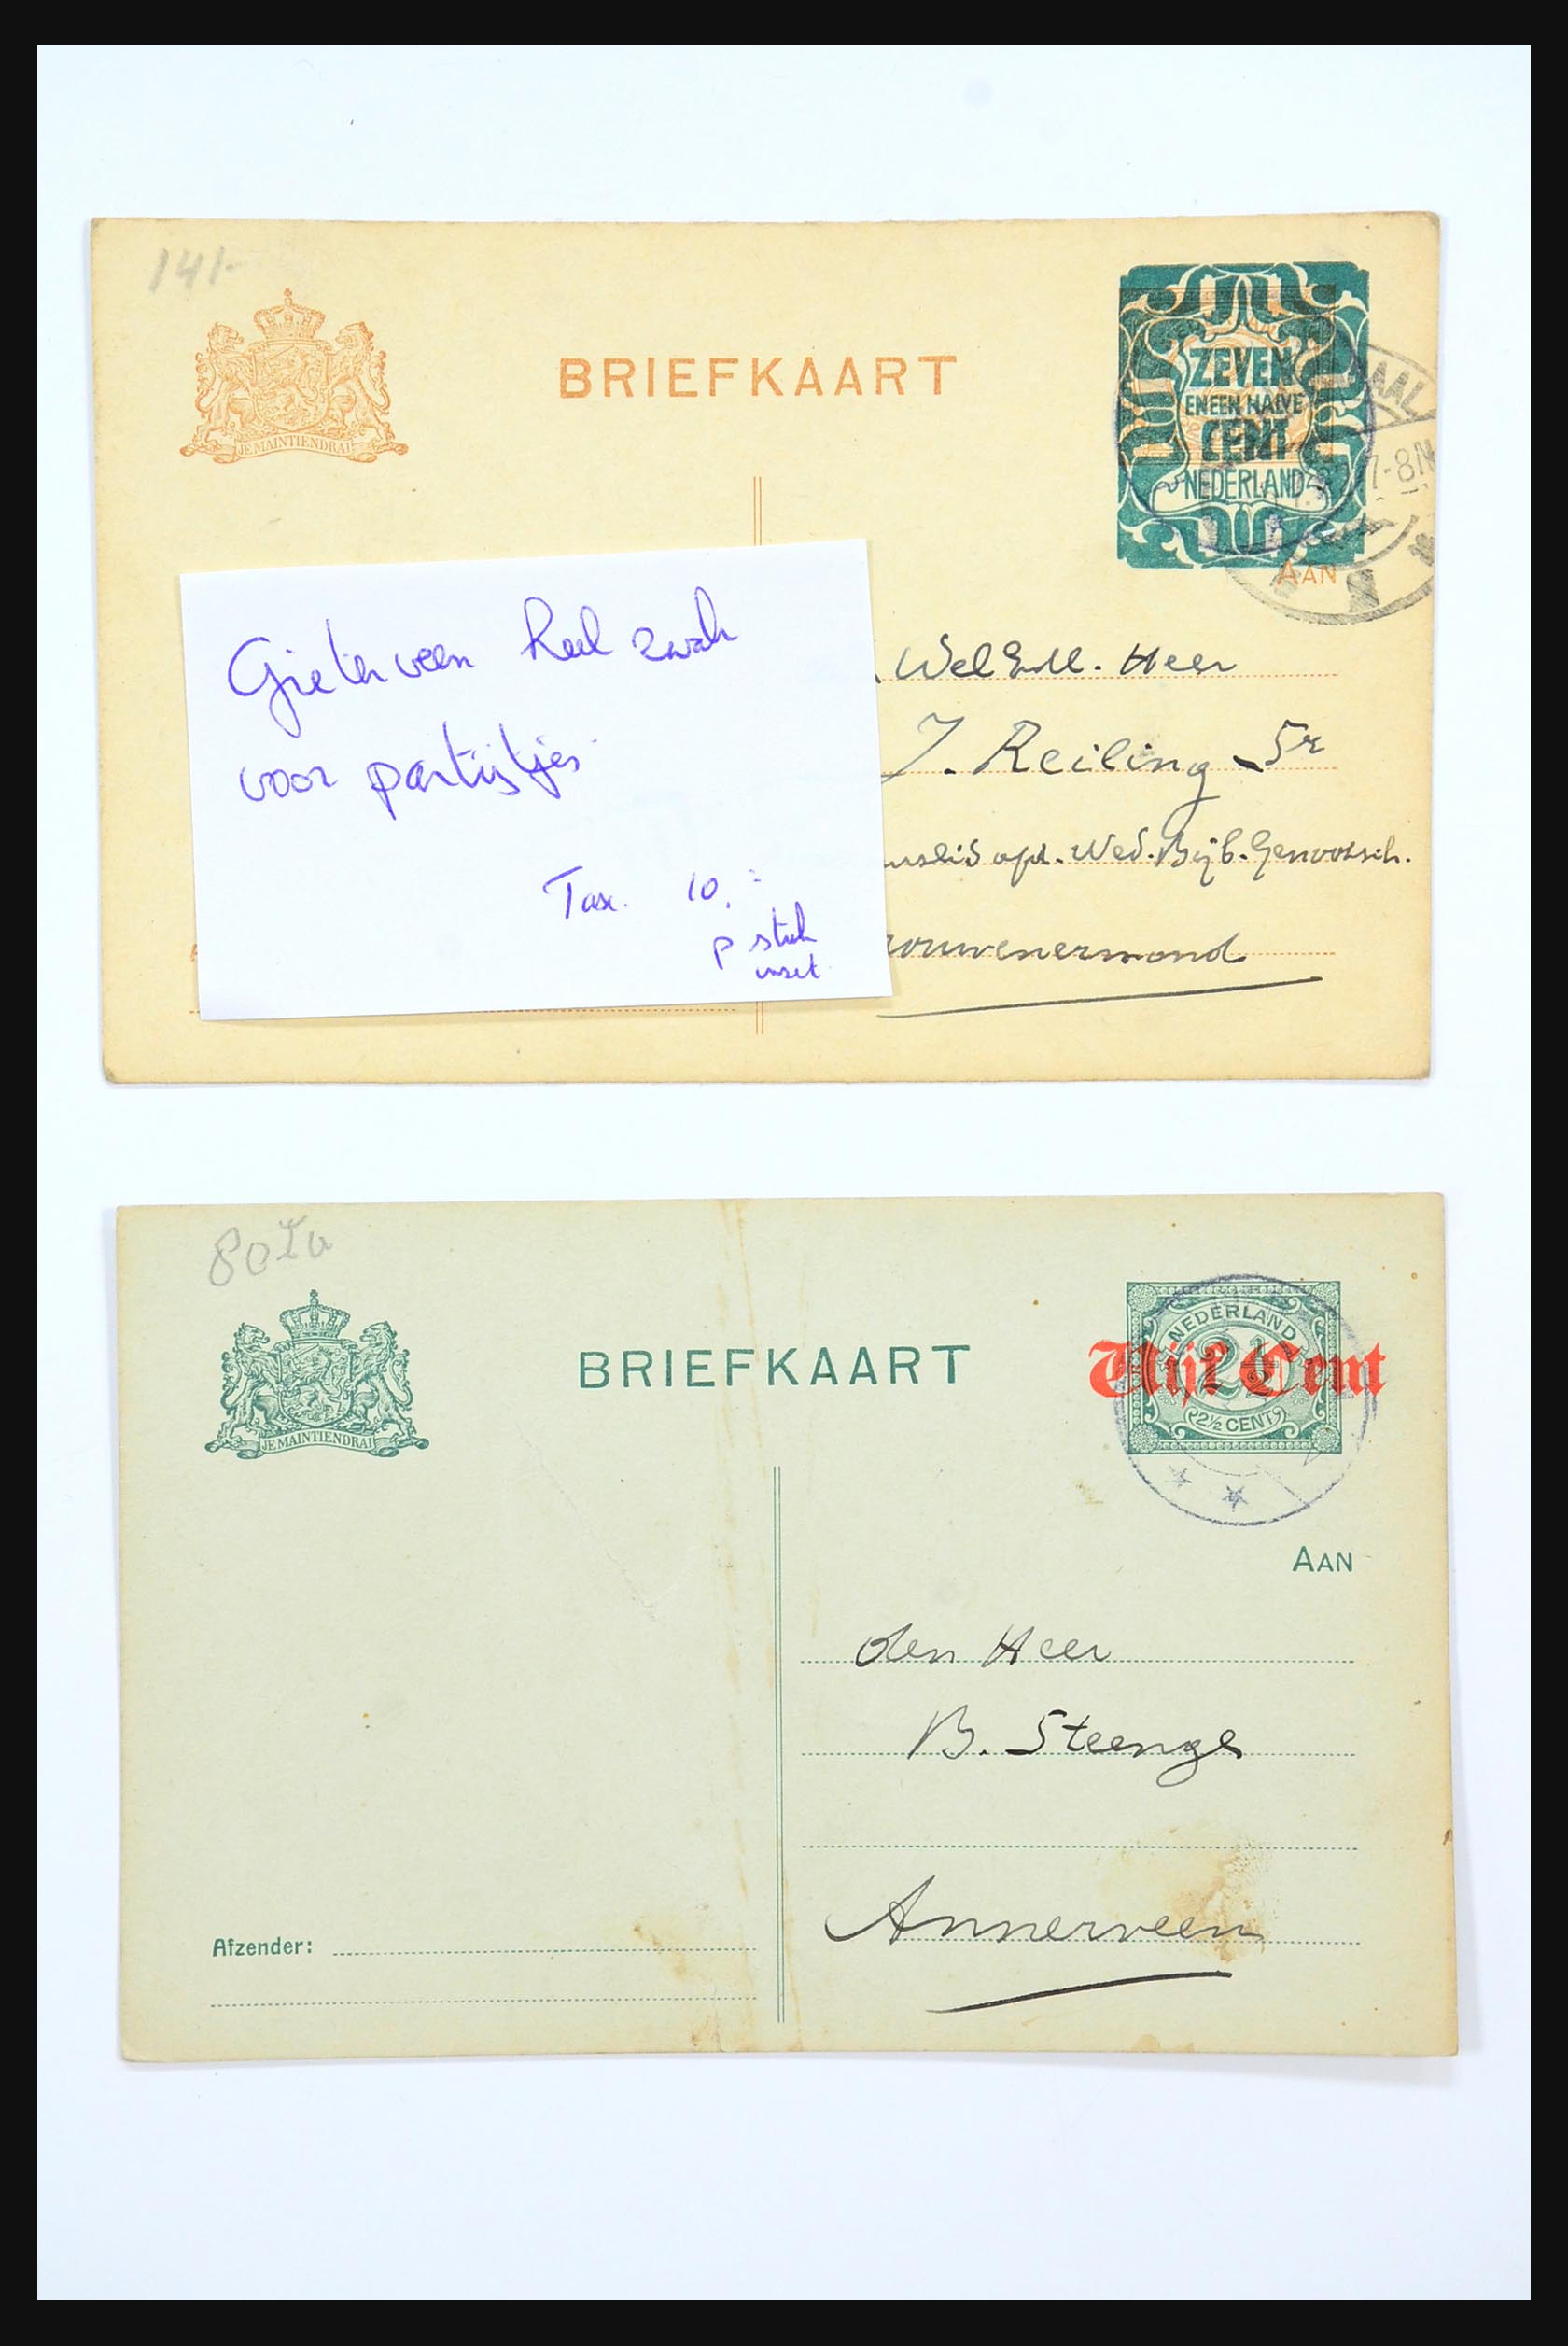 141-
JE MAINTIENDRAI
BRIEFKAART
ZEVEN
EN EEN HALVE
CENT
NEDERLAND
7-8N
AAN
Gieterveen heel zwak
voor partijtjes
Tax. 10.-
p stuk
inzet
WelEdl. Heer
J. Reiling Sr
afd. Ned. Bijb. Genootsch.
ouwenermond
JE MAINTIENDRAI
BRIEFKAART
NEDERLAND
2½
Vijf Cent
2½ CENT
AAN
den Heer
B. Steenge
Annerveen
Afzender: